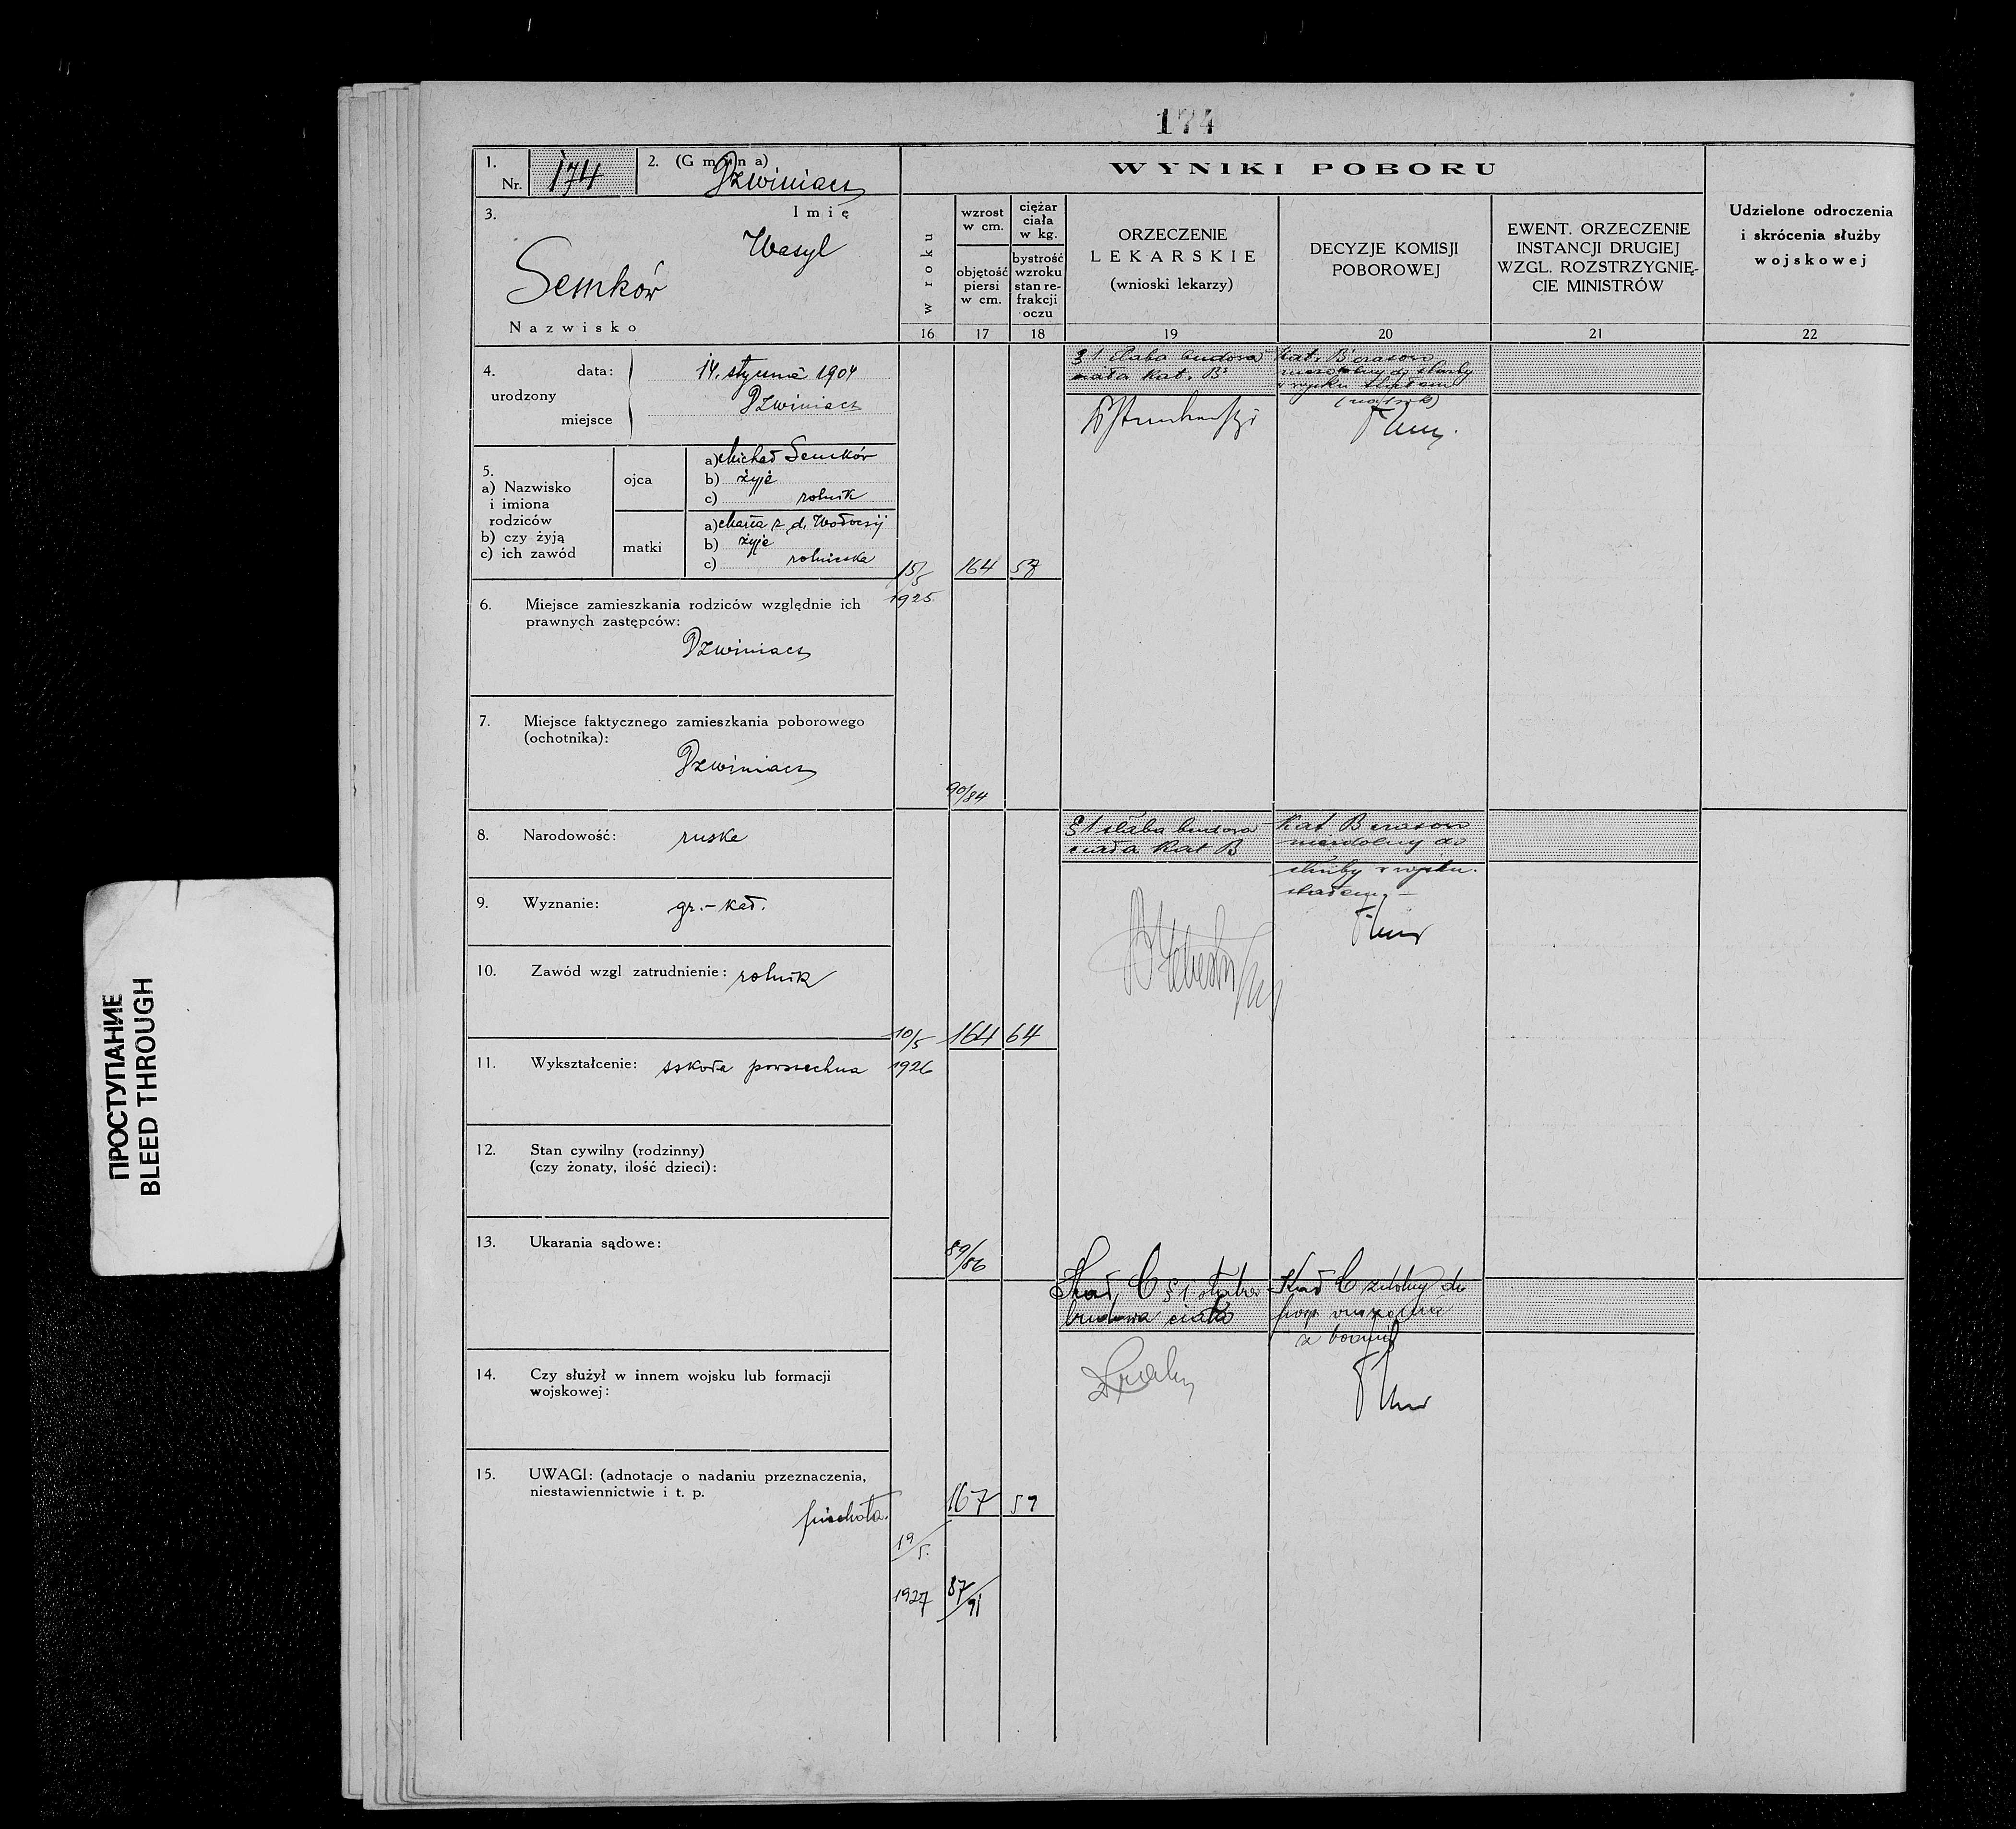 174
1.
Nr. 174
2. (Gmina)
Dzwiniacz
WYNIKI POBORU
3.
Imię
Wasyl
Semków
Nazwisko
w roku
wzrost
w cm.
objętość
piersi
w cm.
ciężar
ciała
w kg.
bystrość
wzroku
stan re-
frakcji
oczu
ORZECZENIE
LEKARSKIE
(wnioski lekarzy)
DECYZJE KOMISJI
POBOROWEJ
EWENT. ORZECZENIE
INSTANCJI DRUGIEJ
WZGL. ROZSTRZYGNIĘ-
CIE MINISTRÓW
Udzielone odroczenia
i skrócenia służby
wojskowej
16 17 18 19 20 21 22
4.
urodzony
data: 14. stycznia 1904
miejsce Dzwiniacz
5.
a) Nazwisko
i imiona
rodziców
b) czy żyją
c) ich zawód
ojca
a) Michał Semków
b) żyje
c) rolnik
matki
a) Maria z d. Wołoczij
b) żyje
c) rolniczka
15/5
1925.
164 57
90/84
§ 1 słaba budowa
ciała Kat. B
Kat. B czasowo
niezdolny do służby
w wojsku stałem
6. Miejsce zamieszkania rodziców względnie ich
prawnych zastępców:
Dzwiniacz
7. Miejsce faktycznego zamieszkania poborowego
(ochotnika):
Dzwiniacz
8. Narodowość: ruska
9. Wyznanie: gr.-kat.
10. Zawód wzgl zatrudnienie: rolnik
10/5
1926
164 64
89/86
§ 1 słaba budowa
ciała Kat B
Kat B czasowo
niezdolny do
służby w wojsku
stałem. —
11. Wykształcenie: szkoła powszechna
12. Stan cywilny (rodzinny)
(czy żonaty, ilość dzieci):
13. Ukarania sądowe:
Kat. C § 1 słaba
budowa ciała
Kat C zdolny do
posp. ruszenia
z bronią
14. Czy służył w innem wojsku lub formacji
wojskowej:
15. UWAGI: (adnotacje o nadaniu przeznaczenia,
niestawiennictwie i t. p.
piechota.
19/5.
1927
167 59
87/91
ПРОСТУПАНИЕ
BLEED THROUGH